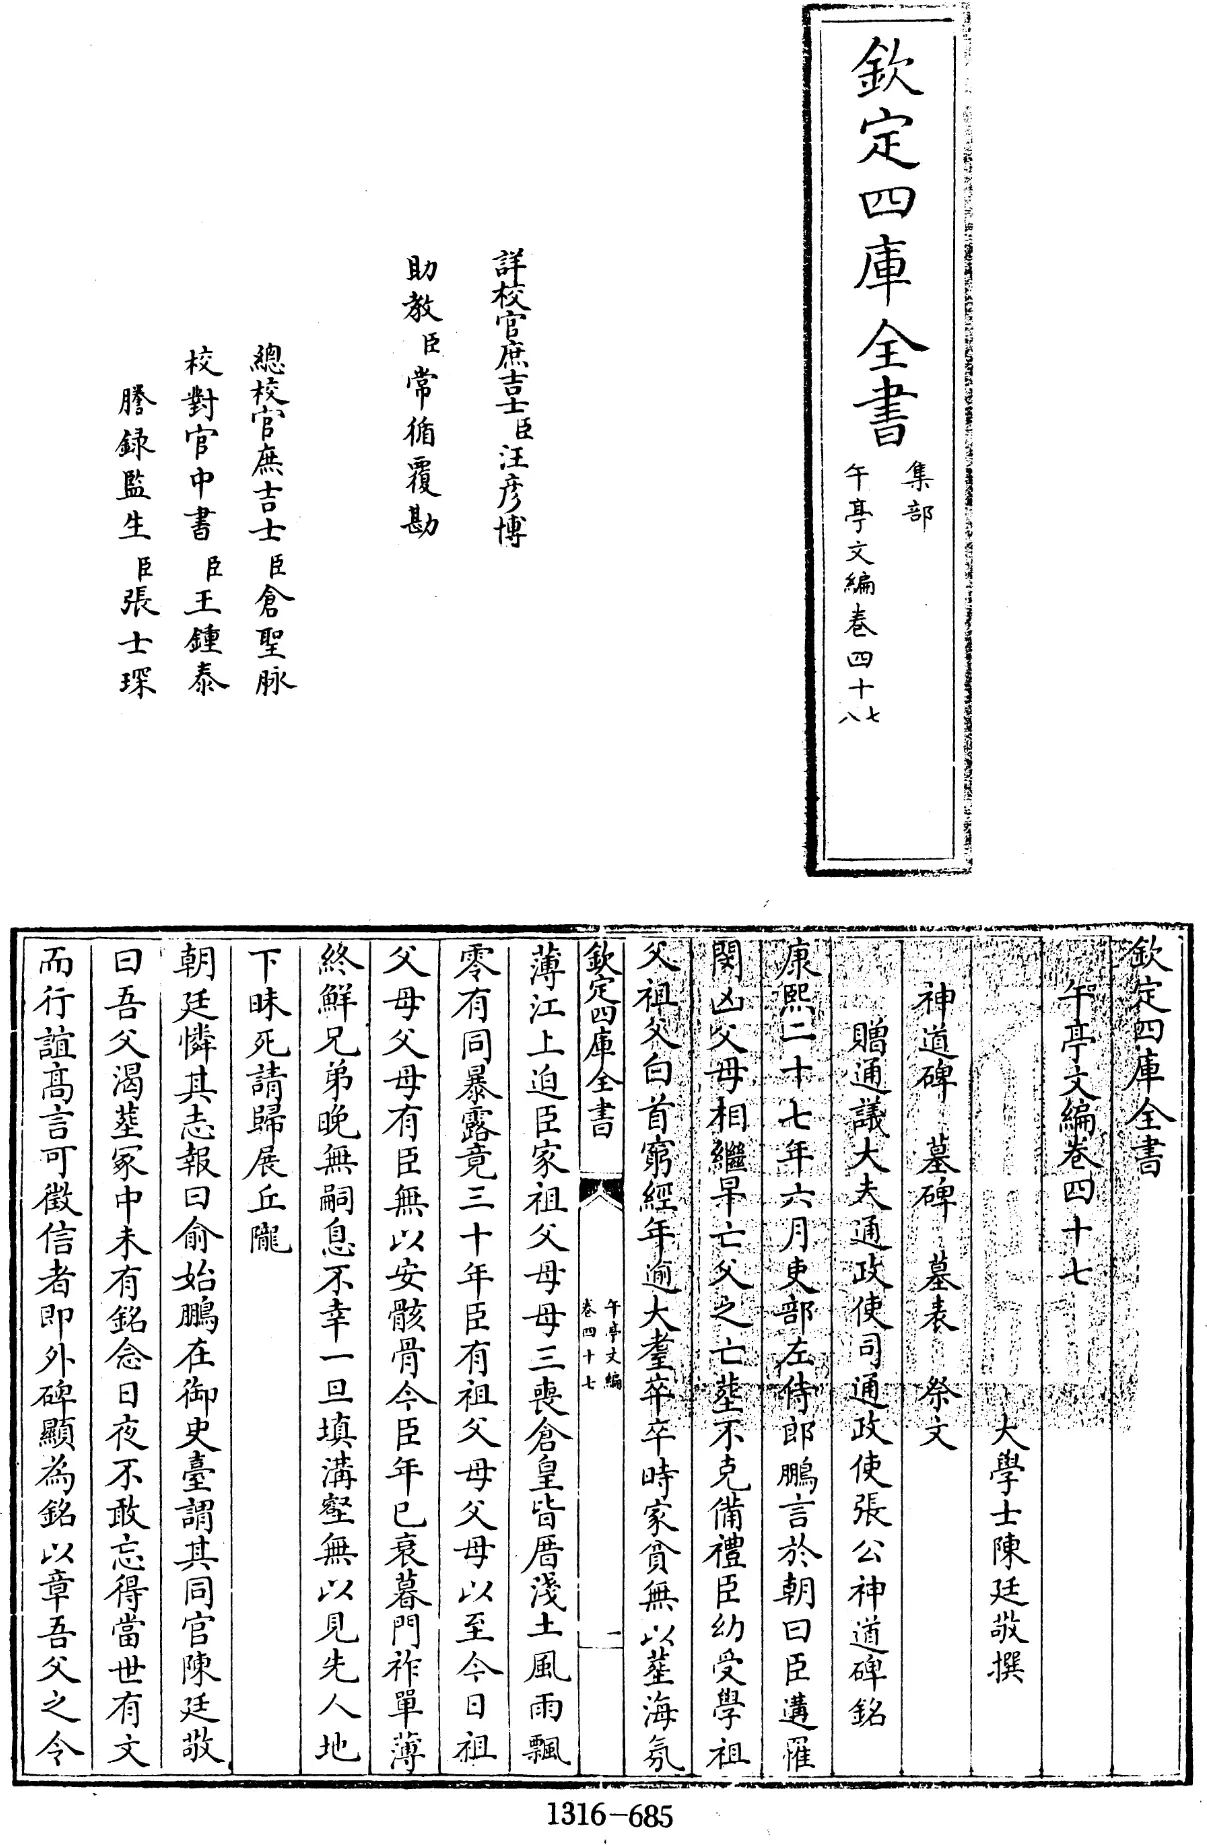 欽定四庫全書
集部
午亭文編卷四十七
八
詳校官庶吉士臣汪彦博
助教臣常循覆勘
總校官庶吉士臣倉聖脉
校對官中書臣王鍾泰
謄録監生臣張士琛
欽定四庫全書
午亭文編卷四十七
大學士陳廷敬撰
神道碑 墓碑 墓表 祭文
贈通議大夫通政使司通政使張公神道碑銘
康熙二十七年六月吏部左侍郎鵬言於朝曰臣遘罹
閔凶父母相繼早亡父之亡塟不克備禮臣幼受學祖
父祖父白首窮經年逾大耋卒卒時家貧無以塟海氛
欽定四庫全書
午亭文編
卷四十七
一
薄江上迫臣家祖父母母三喪倉皇皆厝淺土風雨飄
零有同暴露竟三十年臣有祖父母父母以至今日祖
父母父母有臣無以安骸骨今臣年已衰暮門祚單薄
終鮮兄弟晚無嗣息不幸一旦填溝壑無以見先人地
下昧死請歸展丘隴
朝廷憐其志報曰俞始鵬在御史臺謂其同官陳廷敬
曰吾父渴塟冢中未有銘念日夜不敢忘得當世有文
而行誼髙言可徵信者即外碑顯為銘以章吾父之令
1316-685